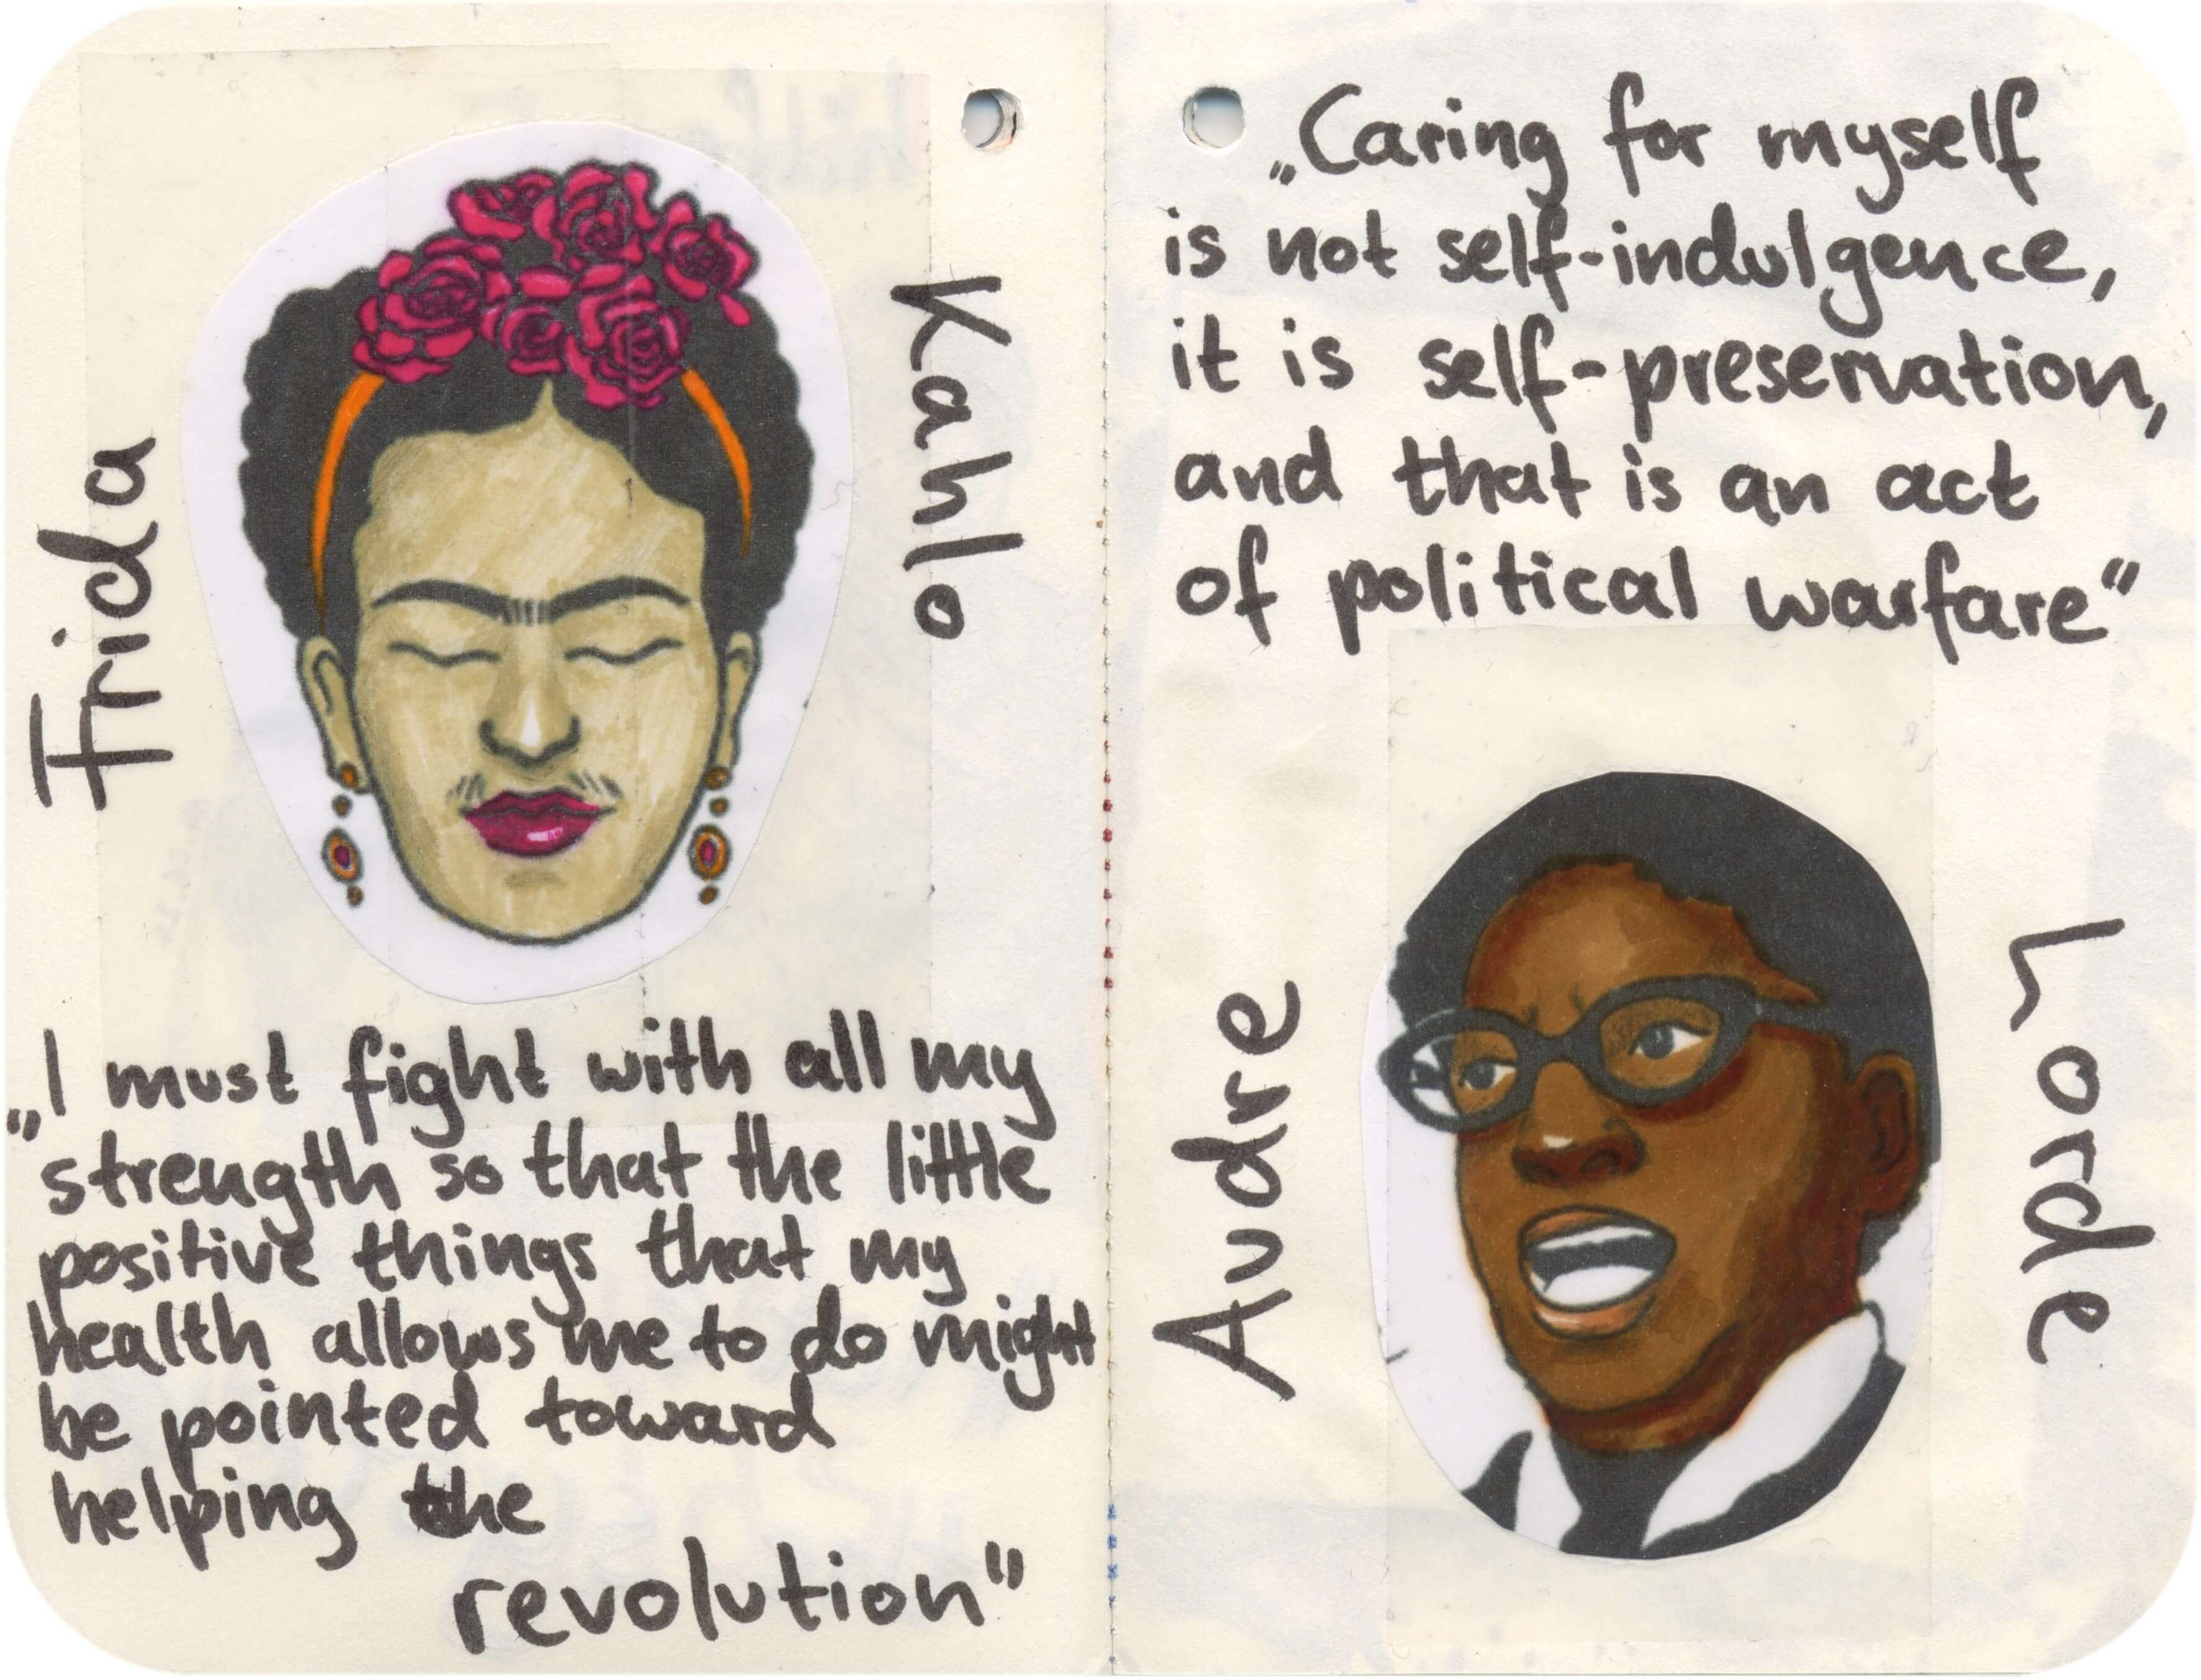 Frida
Kahlo
„I must fight with all my
strength so that the little
positive things that my
health allows me to do might
be pointed toward
helping the
revolution“
„Caring for myself
is not self-indulgence,
it is self-preservation,
and that is an act
of political warfare“
Audre
Lorde